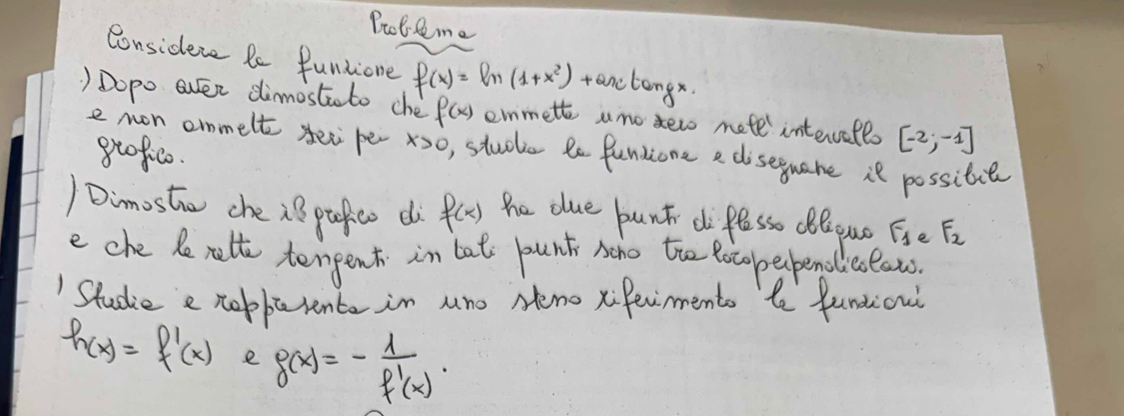 Problema
Considera la funzione f(x) = ln (1+x²) + arctang x.
) Dopo aver dimostrato che f(x) ammette uno zero nell'intervallo [-2; -1]
e non ammette zeri per x>0, studia la funzione e disegnane il possibile
grafico.
) Dimostra che il grafico di f(x) ha due punti di flesso obliquo F1 e F2
e che le rette tangenti in tali punti sono tra loro perpendicolari.
) Studia e rappresenta in uno stesso riferimento le funzioni
h(x) = f'(x) e g(x) = - 1/f'(x).